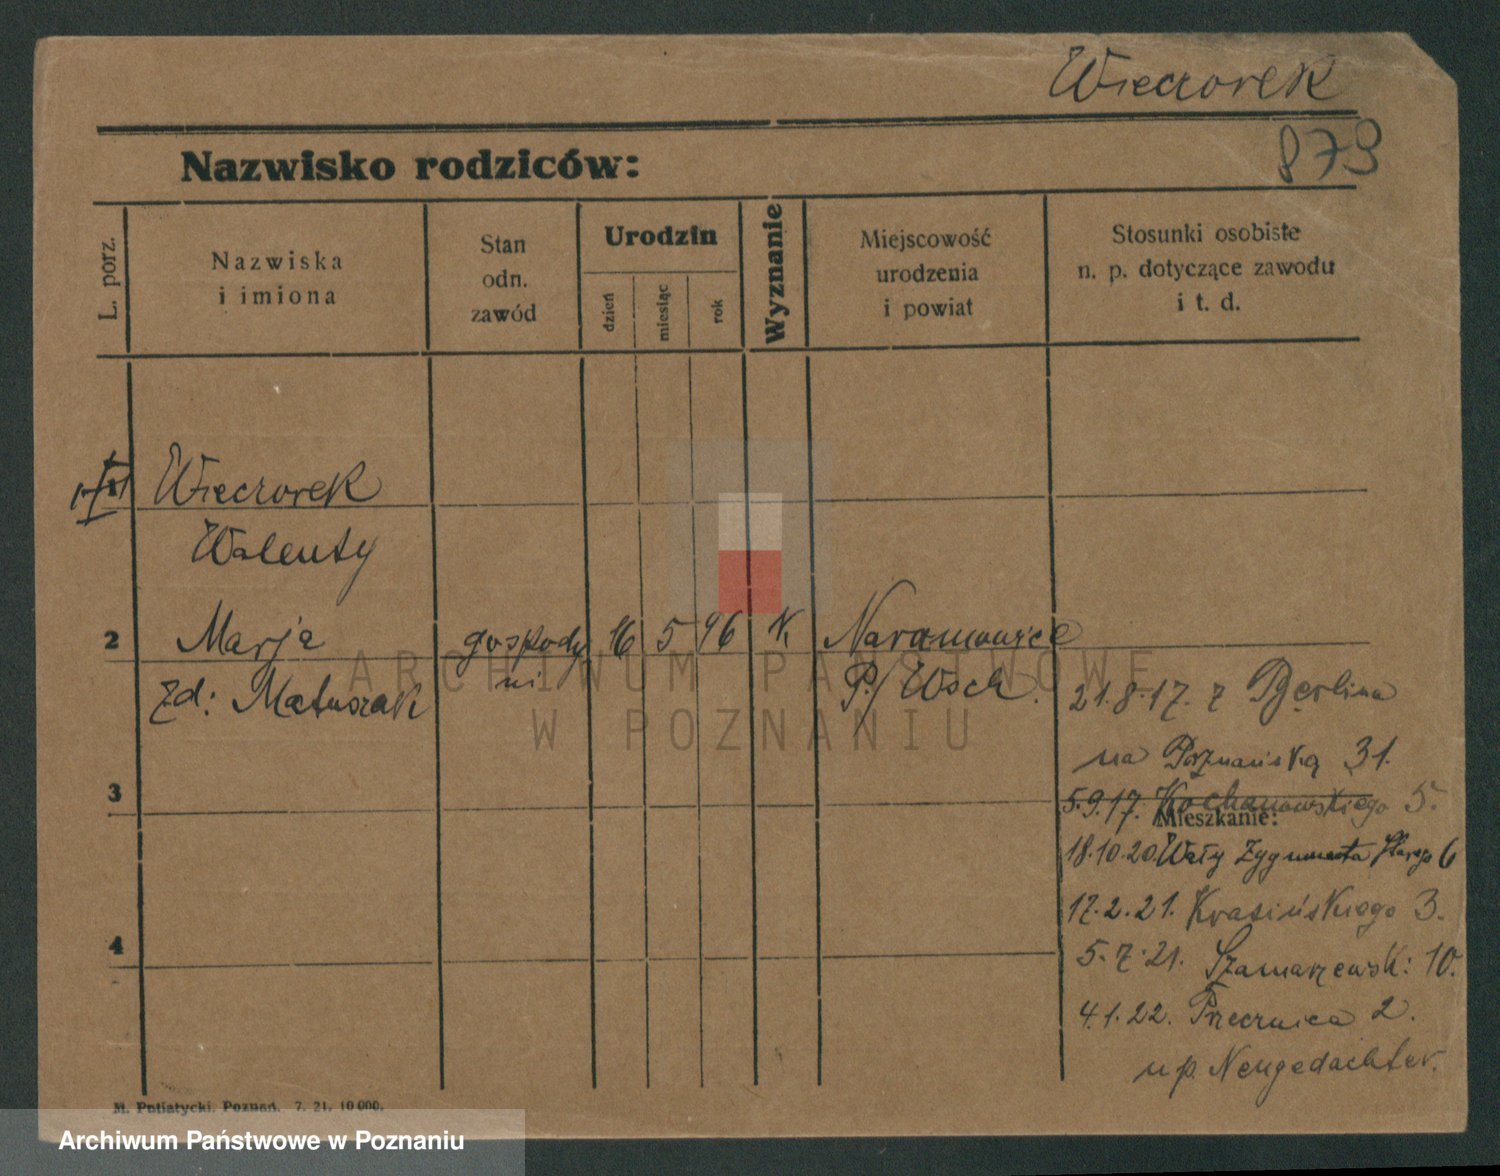 Wieczorek
879
Nazwisko rodziców:
L. porz.
Nazwiska
i imiona
Stan
odn.
zawód
Urodzin
dzień
miesiąc
rok
Wyznanie
Miejscowość
urodzenia
i powiat
Stosunki osobiste
n. p. dotyczące zawodu
i t. d.
Wieczorek
Walenty
2 Marja gospody 16 5 96 K. Naramowice
zd: Matuszak ni P./Wsch.
21.8.17. z Berlina
na Poznańską 31.
3
5.9.17. Kochanowskiego 5.
Mieszkanie:
18.10.20 Wały Zygmunta Starego 6
17.2.21. Krasińskiego 3.
4
5.7.21. Szamarzewsk: 10.
4.1.22. Przecznica 2.
u p. Neugedachter.
M. Putiatycki, Poznań. 7. 21. 10000.
ARCHIWUM PAŃSTWOWE
W POZNANIU
Archiwum Państwowe w Poznaniu